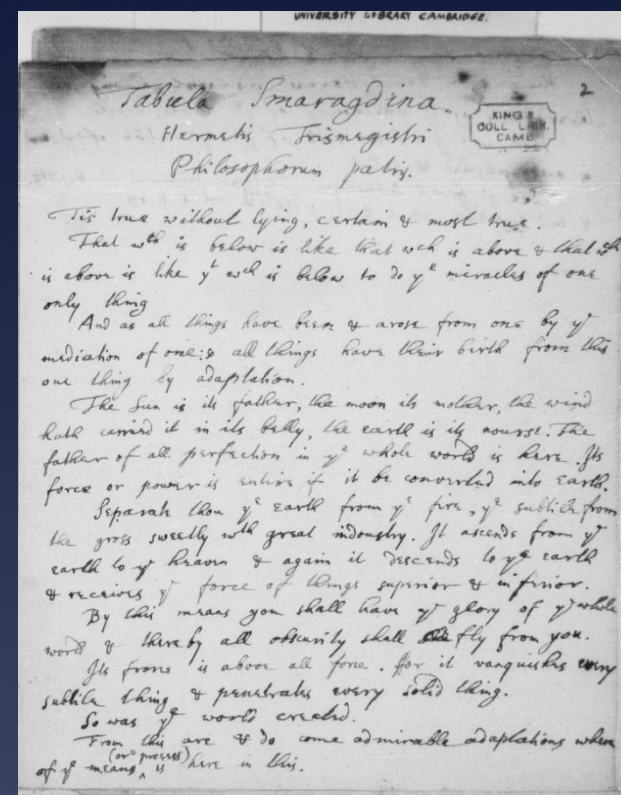 UNIVERSITY LIBRARY CAMBRIDGE.
2
Tabula Smaragdina.
Hermetis Trismegistri
Philosophorum patris.
KING'S
COLL LIBR.
CAMB
Tis true without lying, certain & most true.
That wch is below is like that wch is above & that wch
is above is like yt wch is below to do ye miracles of one
only thing
And as all things have been & arose from one by ye
mediation of one: so all things have their birth from this
one thing by adaptation.
The Sun is its father, the moon its mother, the wind
hath carried it in its belly, the earth is its nourse. The
father of all perfection in ye whole world is here. Its
force or power is entire if it be converted into earth.
Separate thou ye earth from ye fire, ye subtile from
the gross sweetly wth great indoustry. It ascends from ye
earth to ye heaven & again it descends to ye earth
& receives ye force of things superior & inferior.
By this means you shall have ye glory of ye whole
world & thereby all obscurity shall fly from you.
Its force is above all force. ffor it vanquishes every
subtile thing & penetrates every solid thing.
So was ye world created.
From this are & do come admirable adaptations where
of ye means (or process) is here in this.